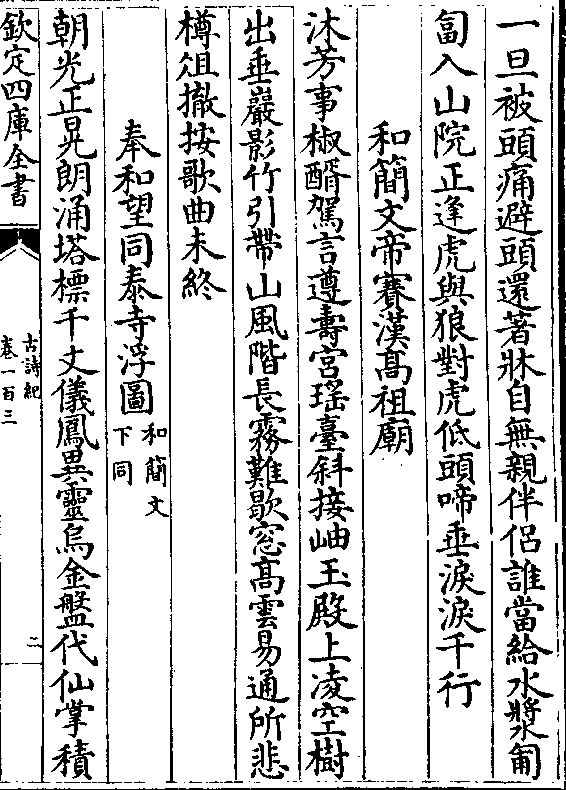 一旦被頭痛避頭還著牀自無親伴侶誰當給水漿匍
匐入山院正逢虎與狼對虎低頭啼垂淚淚千行
和簡文帝賽漢髙祖廟
沐芳事椒醑駕言遵壽宮瑶臺斜接岫玉殿上凌空樹
出垂巖影竹引帶山風階長霧難歇窓髙雲易通所悲
樽俎撤按歌曲未終
奉和望同泰寺浮圖和簡文下同
朝光正晃朗涌塔標千丈儀鳳異靈烏金盤代仙掌積
欽定四庫全書
古詩紀
卷一百三
二